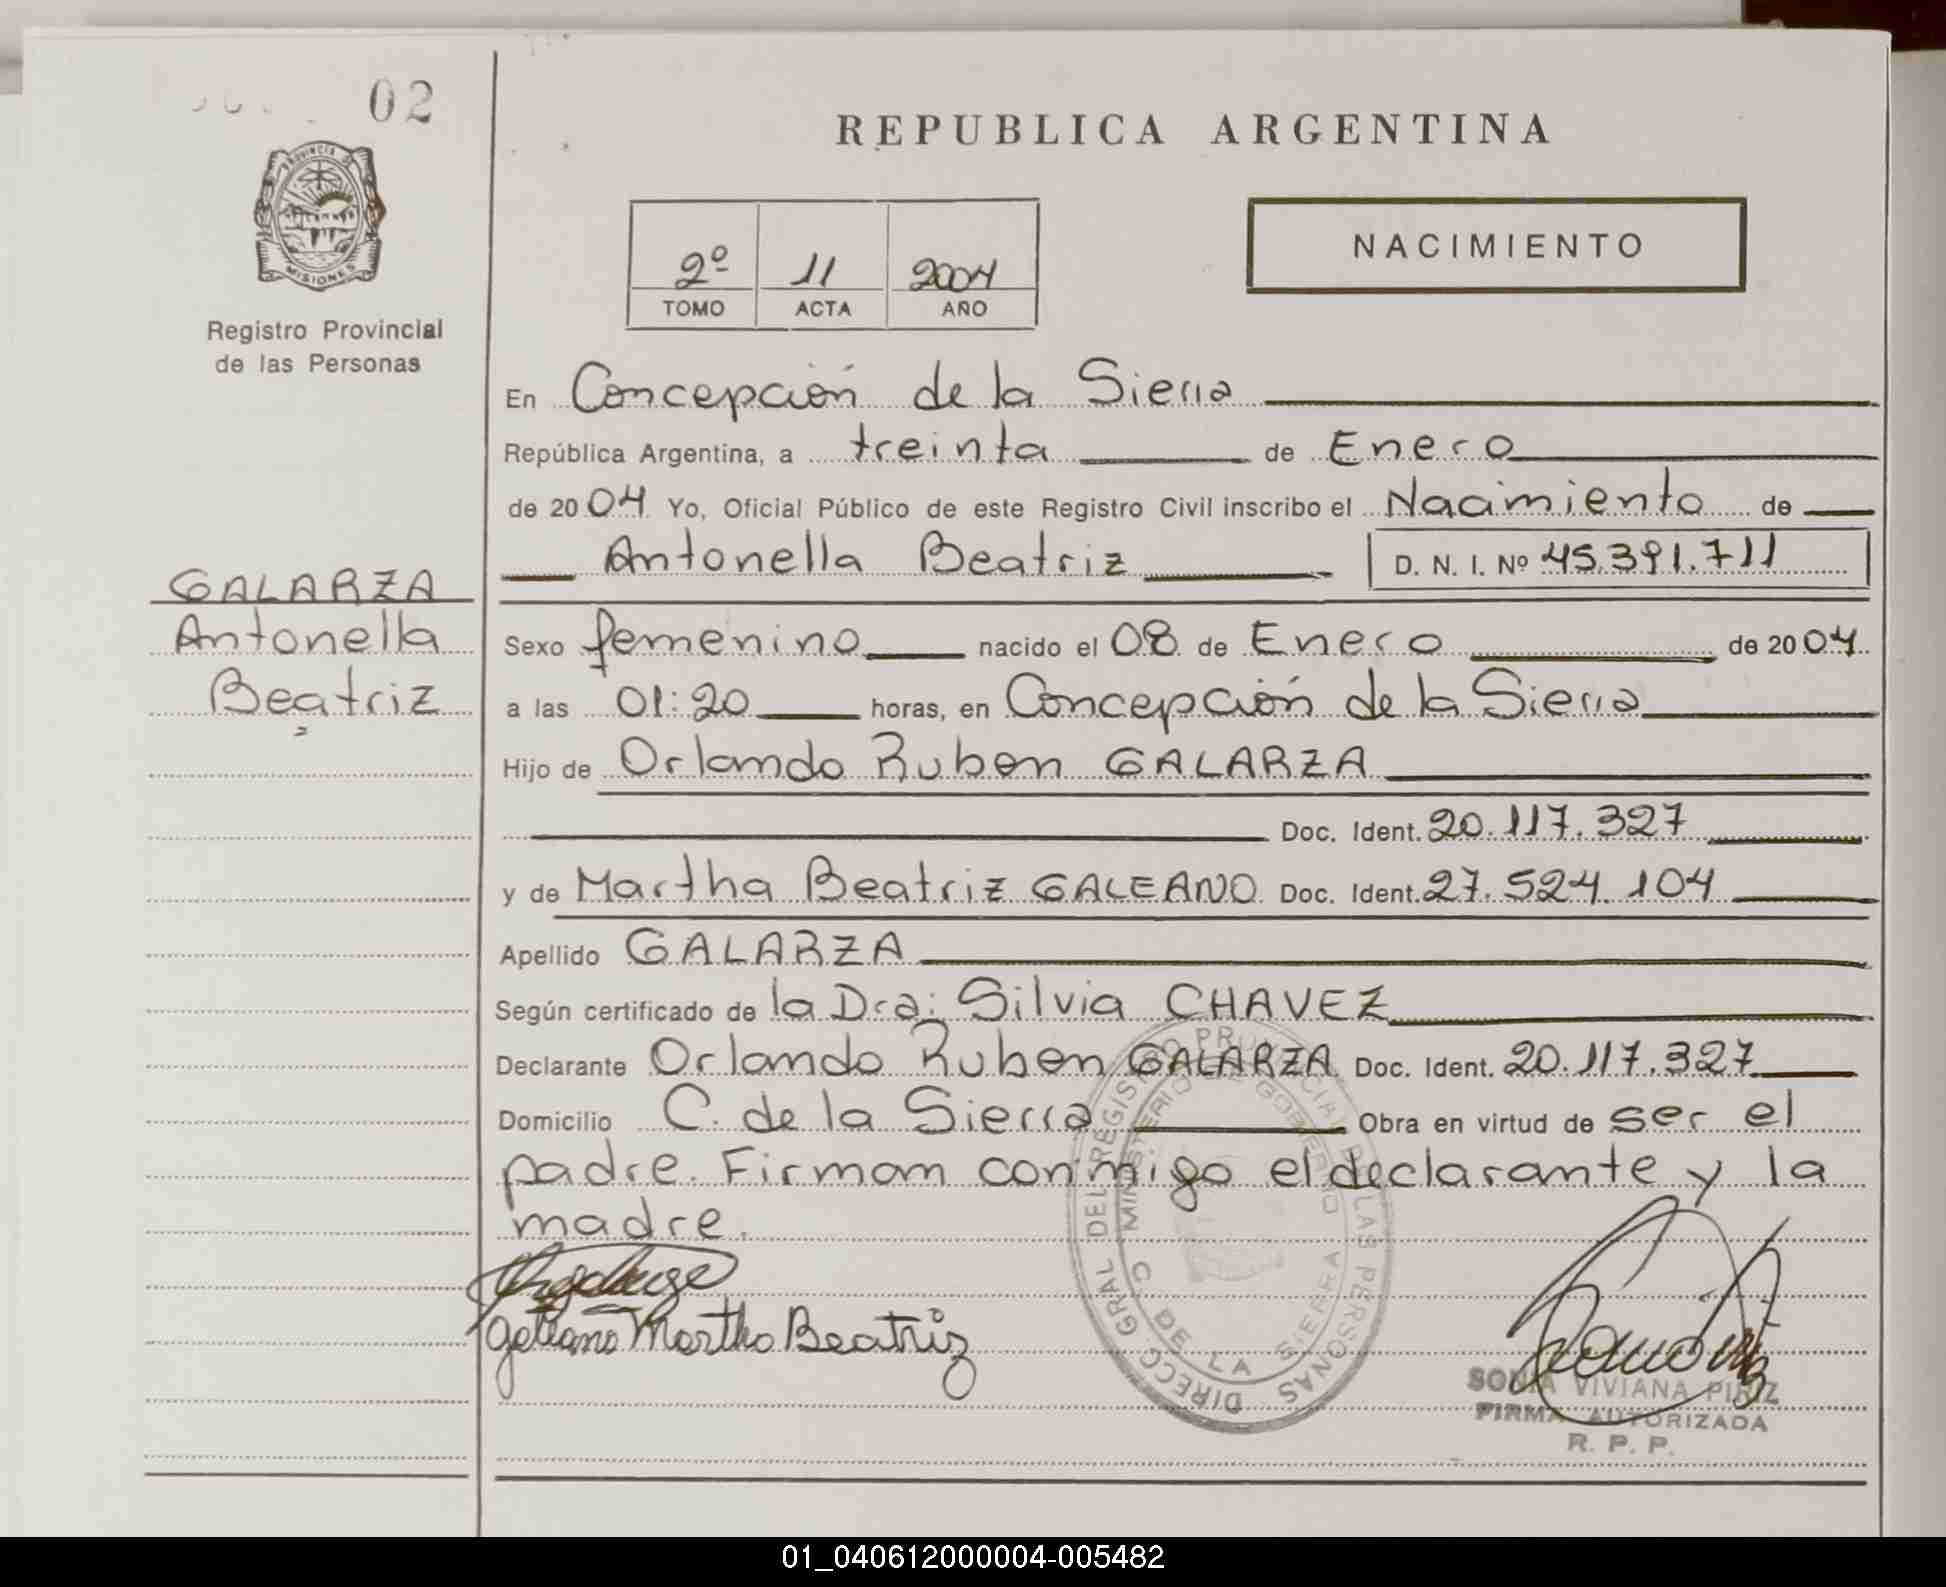 02
PROVINCIA DE
MISIONES
Registro Provincial
de las Personas
GALARZA
Antonella
Beatriz
REPUBLICA ARGENTINA
2º 11 2004
TOMO ACTA AÑO
NACIMIENTO
En Concepción de la Sierra
República Argentina, a treinta de Enero
de 2004 Yo, Oficial Público de este Registro Civil inscribo el Nacimiento de
Antonella Beatriz D. N. I. Nº 45.391.711
Sexo femenino nacido el 08 de Enero de 2004
a las 01:20 horas, en Concepción de la Sierra
Hijo de Orlando Ruben GALARZA
Doc. Ident. 20.117.327
y de Martha Beatriz GALEANO Doc. Ident. 27.524.104
Apellido GALARZA
Según certificado de la Dra: Silvia CHAVEZ
Declarante Orlando Ruben GALARZA Doc. Ident. 20.117.327
Domicilio C. de la Sierra Obra en virtud de ser el
padre. Firman conmigo el declarante y la
madre.
Galeano Martha Beatriz
DIRECC. GRAL DEL REGISTRO PROVINCIAL DE LAS PERSONAS
MINISTERIO DE GOBIERNO
C. DE LA SIERRA
SONIA VIVIANA PIRIZ
FIRMA AUTORIZADA
R. P. P.
01_040612000004-005482